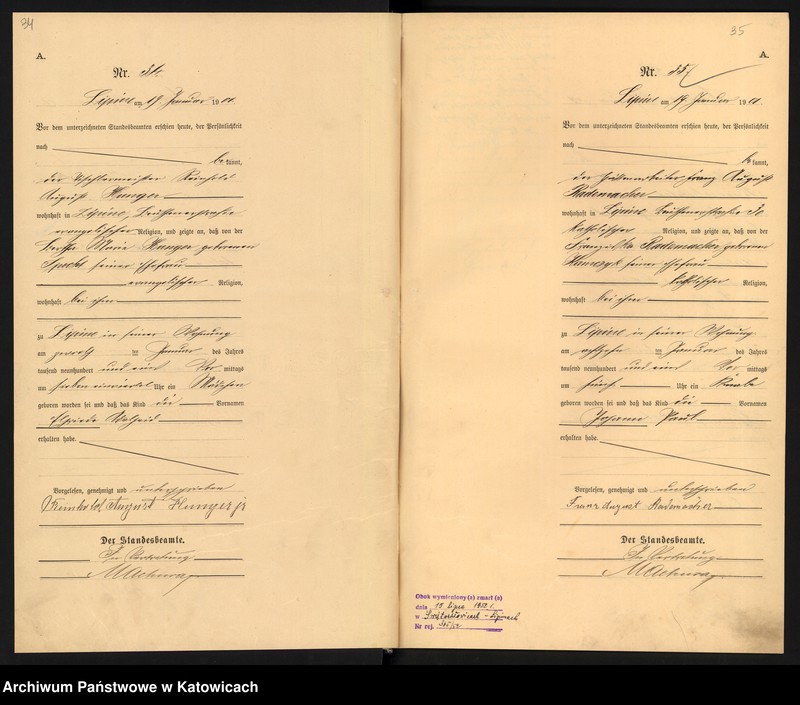 34
A.
Nr. 34.
Lipine am 19 Januar 1901.
Vor dem unterzeichneten Standesbeamten erschien heute, der Persönlichkeit
nach
be kannt,
der Tischlermeister Reinhold
August Hunger
wohnhaft in Lipine, Beuthenerstraße
evangelischer Religion, und zeigte an, daß von der
Marie Hunger geborenen
Specht seiner Ehefrau
evangelischer Religion,
wohnhaft bei ihm
zu Lipine in seiner Wohnung
am zwölf im Januar des Jahres
tausend neunhundert und eins Vor mittags
um sieben einviertel Uhr ein Mädchen
geboren worden sei und daß das Kind die Vornamen
Elfriede
erhalten habe.
Vorgelesen, genehmigt und unterschrieben
Reinhold August Hunger jr
Der Standesbeamte.
In Vertretung
35
A.
Nr. 35
Lipine am 19 Januar 1901.
Vor dem unterzeichneten Standesbeamten erschien heute, der Persönlichkeit
nach
be kannt,
der Hüttenarbeiter Franz August
Rademacher
wohnhaft in Lipine Beuthenerstraße
katholischer Religion, und zeigte an, daß von der
Franziska Rademacher geborenen
seiner Ehefrau
katholischer Religion,
wohnhaft bei ihm
zu Lipine in seiner Wohnung
am achtzehn im Januar des Jahres
tausend neunhundert und eins Vor mittags
um fünf Uhr ein Knabe
geboren worden sei und daß das Kind die Vornamen
Johann Paul
erhalten habe.
Vorgelesen, genehmigt und unterschrieben
Franz August Rademacher
Der Standesbeamte.
In Vertretung
Obok wymieniony(a) zmarł(a)
dnia 15 lipca
w Świętochłowicach - Lipinach
Nr rej.
Archiwum Państwowe w Katowicach